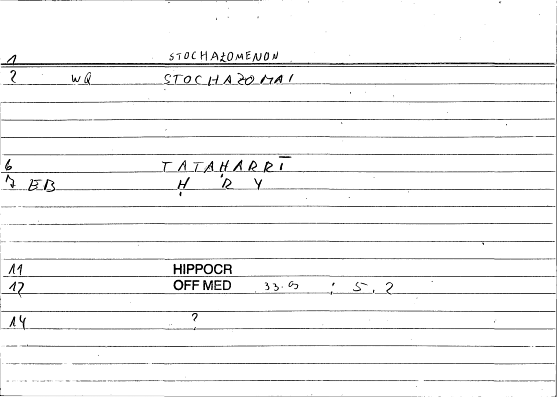 1 STOCHAZOMENON
2 WQ STOCHAZOMAI
6 TATAHARRĪ
7 EB Ḥ R Y
11 HIPPOCR
12 OFF MED ; 5. 2
14 ?